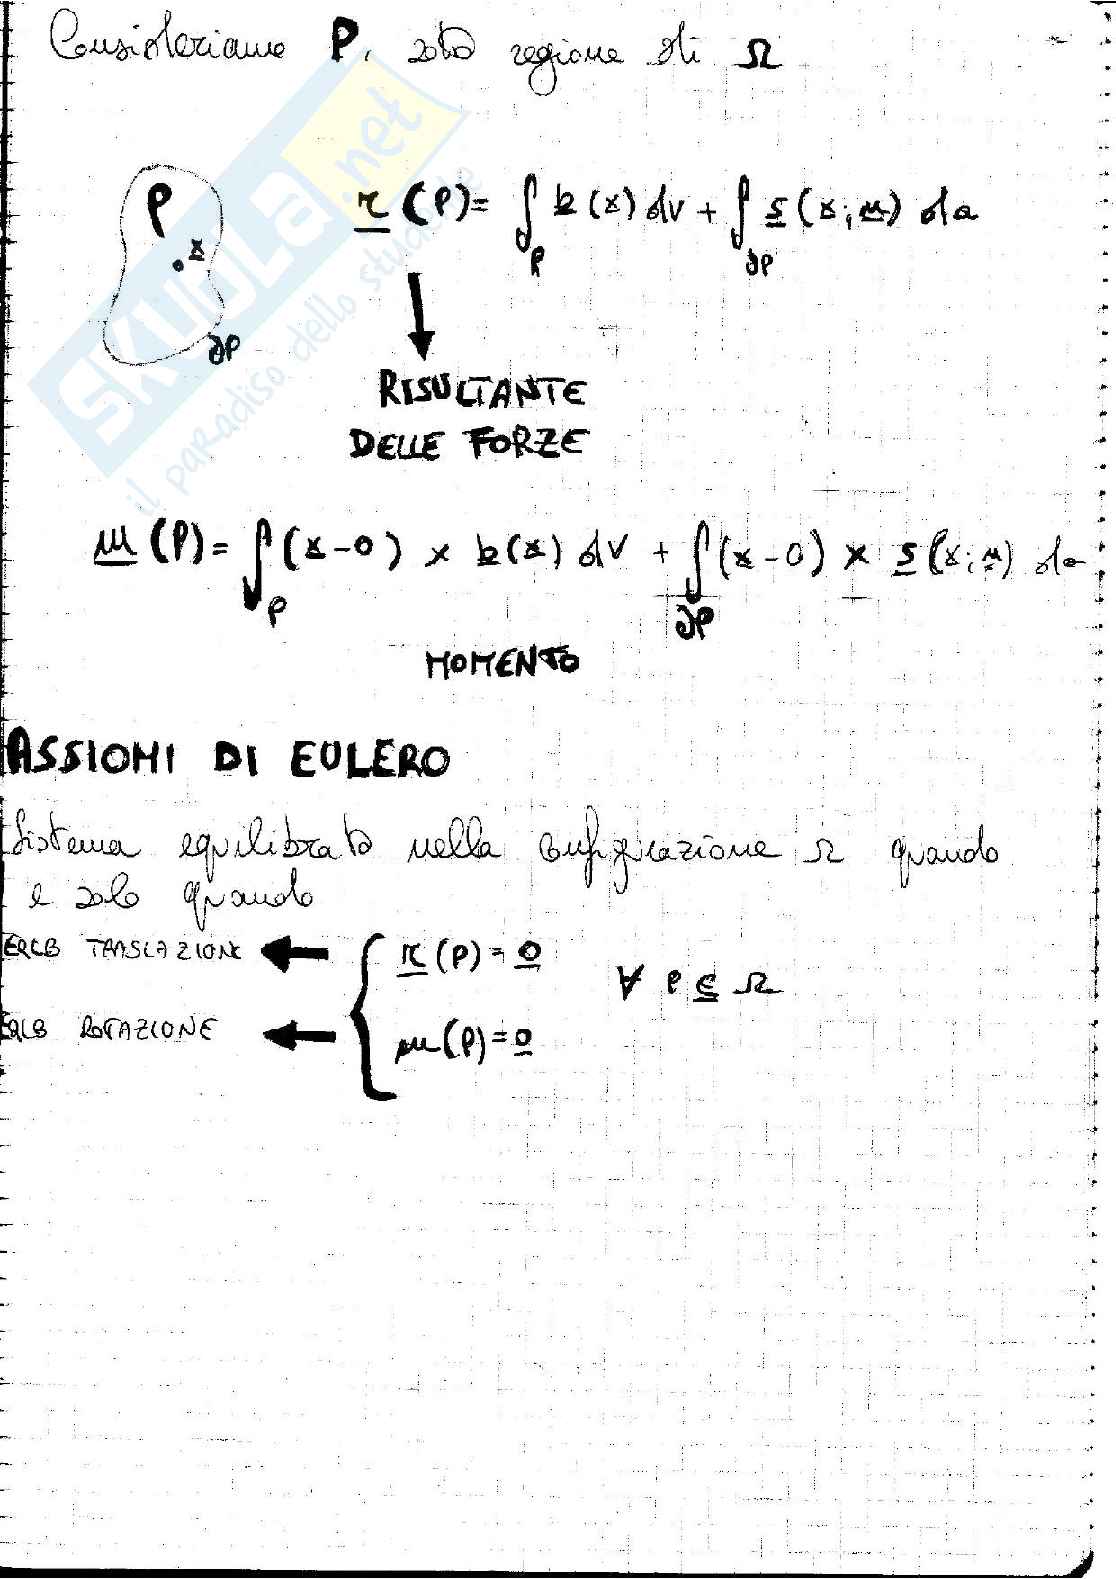 Consideriamo P, sotto regione di Ω
P
x
∂P
r (P) = ∫_P b(x) dv + ∫_∂P s(x; n) da
RISULTANTE
DELLE FORZE
m (P) = ∫_P (x-o) × b(x) dv + ∫_∂P (x-o) × s(x; n) da
MOMENTO
ASSIOMI DI EULERO
Sistema equilibrato nella configurazione Ω quando
e solo quando
EQLB TRASLAZIONE ← { r(P) = 0
∀ P ⊆ Ω
EQLB ROTAZIONE ← m(P) = 0
SKUOLA.net
il paradiso dello studente